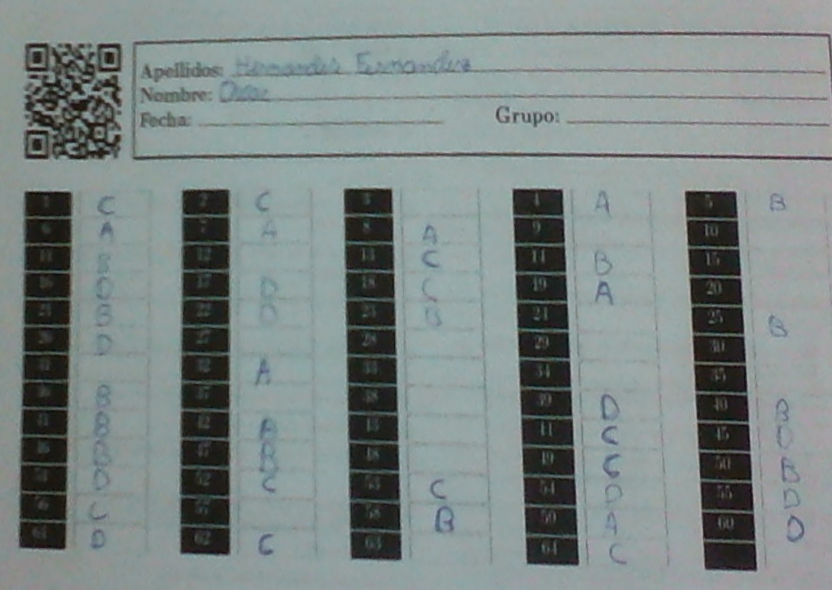 Apellidos: Hernandez Fernandez
Nombre: Oscar
Fecha: Grupo:
1 C 2 C 3 4 A 5 B
6 A 7 A 8 A 9 10
11 B 12 13 C 14 B 15
16 D 17 D 18 C 19 A 20
21 B 22 D 23 B 24 25 B
26 D 27 28 29 30
31 32 A 33 34 35
36 B 37 38 39 D 40 B
41 B 42 A 43 44 C 45 D
46 B 47 B 48 49 C 50 B
51 D 52 C 53 C 54 D 55 D
56 C 57 58 B 59 A 60 D
61 D 62 C 63 64 C